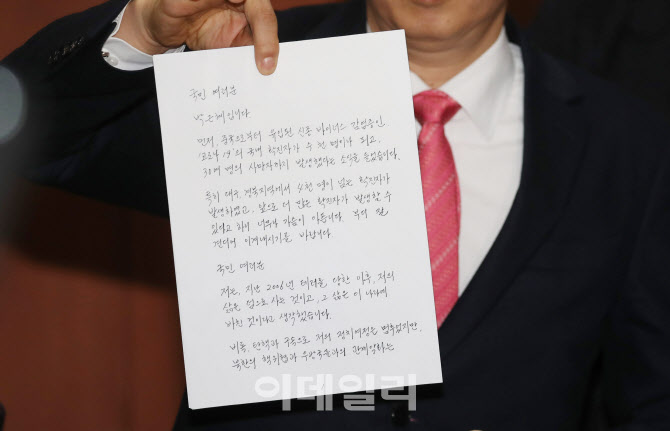 국민 여러분
박근혜입니다
먼저, 중국으로부터 유입된 신종 바이러스 감염증인
'코로나 19'의 국내 확진자가 수 천 명이나 되고,
30여 명의 사망자까지 발생했다는 소식을 들었습니다
특히 대구·경북지역에서 4천 명이 넘는 확진자가
발생하였고, 앞으로 더 많은 확진자가 발생할 수
있다고 하니 너무나 가슴이 아픕니다. 부디 잘
견디어 이겨내시기를 바랍니다.
국민 여러분
저는, 지난 2006년 테러를 당한 이후, 저의
삶은 덤으로 사는 것이고, 그 삶은 이 나라에
바친 것이라고 생각했습니다.
비록, 탄핵과 구속으로 저의 정치여정은 멈추었지만,
북한의 핵위협과 우방국들과의 관계악화는
이데일리